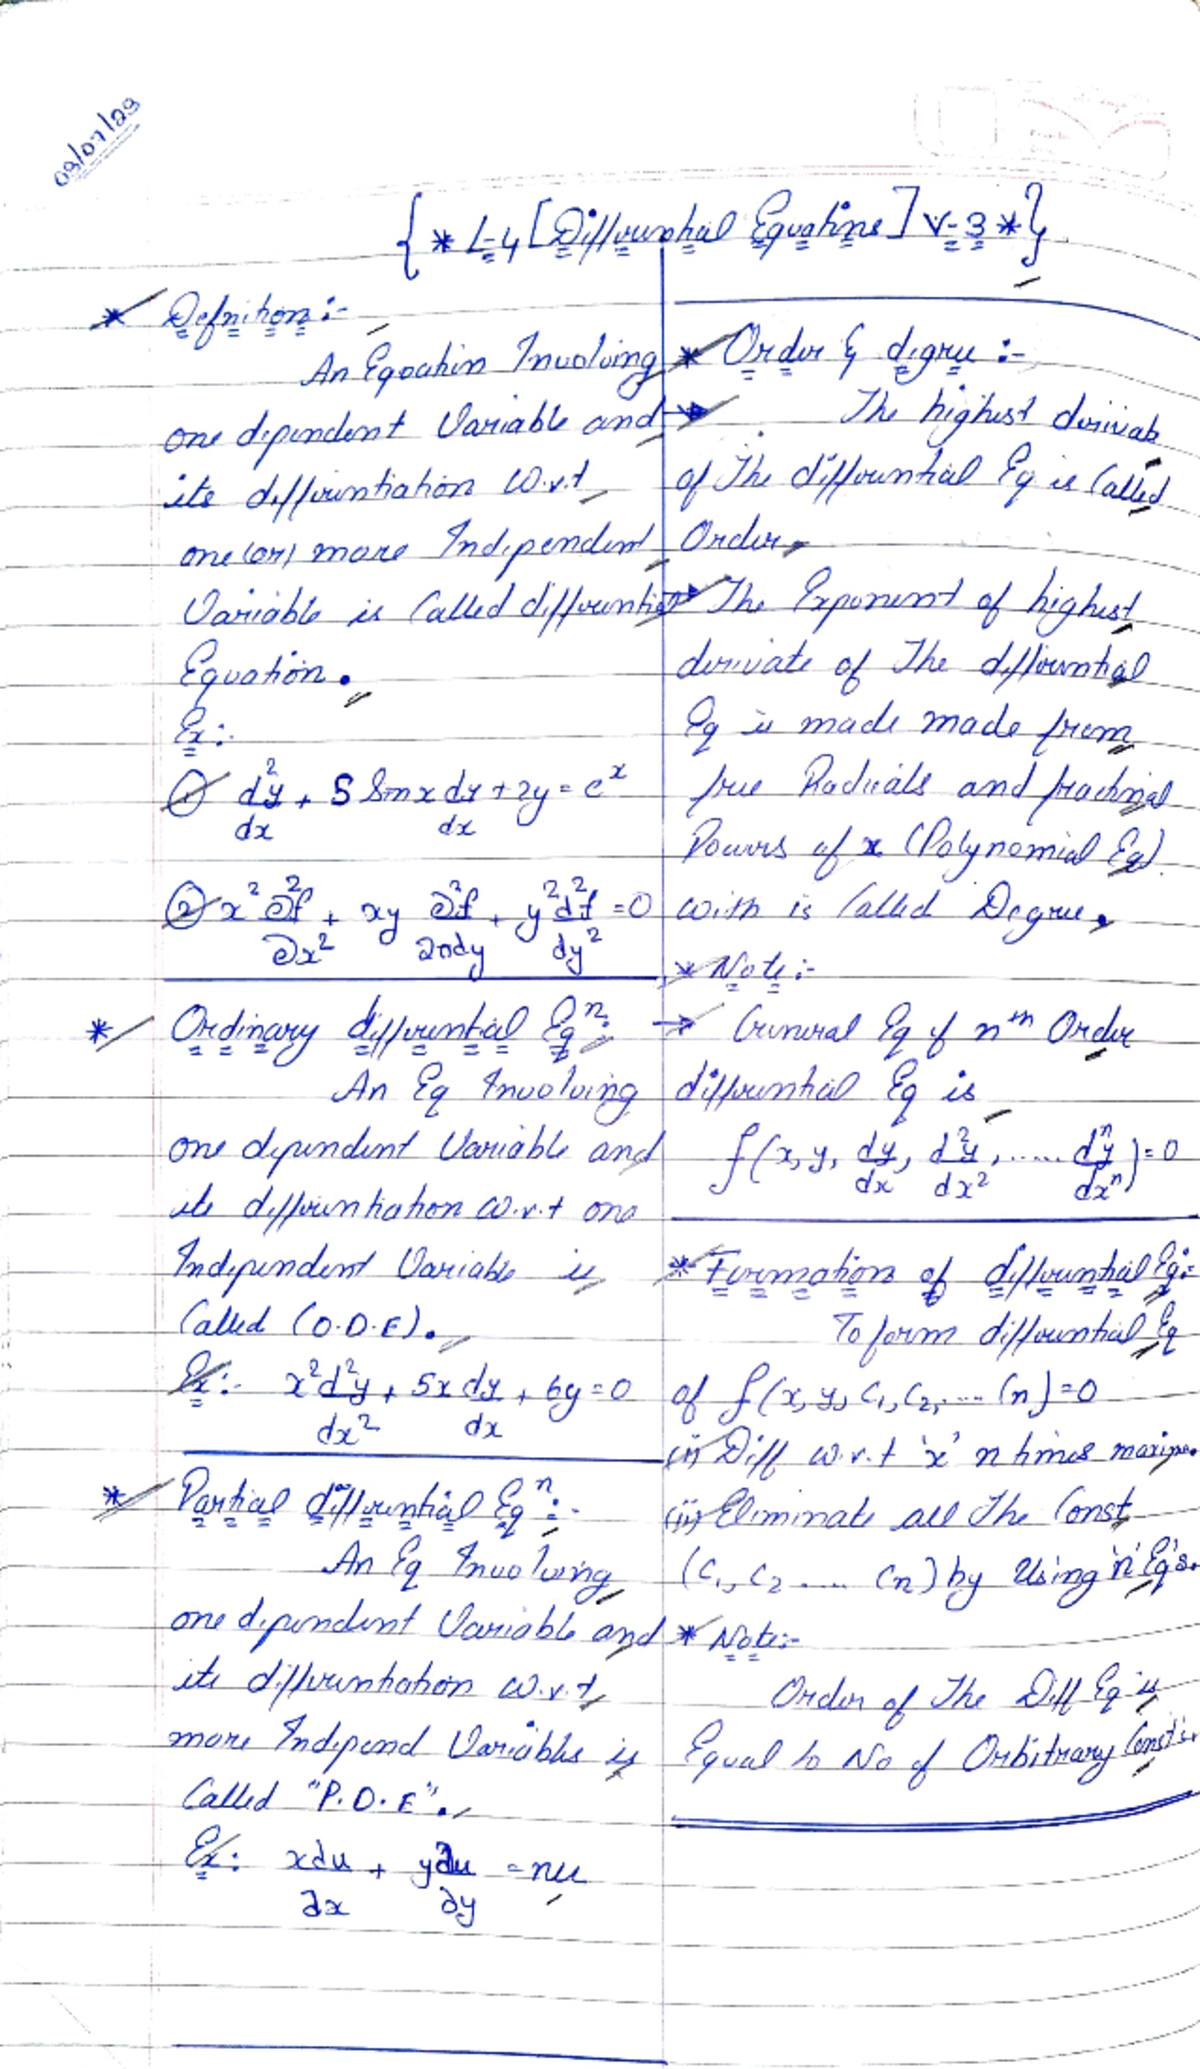 { * L-4 [Differential Equations] V-3 * }
* Definition :-
An Equation Involving
one dependent Variable and
its differentiation w.r.t
one (or) more Independent
Variable is Called differential
Equation.
Ex:-
① d²y/dx + 5 Sinx dy/dx + 2y = e^x
② x² ∂²f/∂x² + xy ∂²f/∂xdy + y² d²f/dy² = 0
* Ordinary differential Eqⁿ:-
An Eq Involving
one dependent Variable and
its differentiation w.r.t one
Independent Variable is
Called (O.D.E).
Ex:- x² d²y/dx² + 5x dy/dx + 6y = 0
* Partial differential Eqⁿ:-
An Eq Involving
one dependent Variable and
its differentiation w.r.t
more Independ Variables is
Called "P.D.E".
Ex: x∂u/∂x + y∂u/∂y = nu
* Order & degree :-
→ The highest derivate
of The differential Eq is Called
Order.
→ The Exponent of highest
derivate of The differential
Eq is made made from
free Radicals and fractional
Powers of x (Polynomial Eq)
with is Called Degree.
* Note :-
→ General Eq of nth Order
differential Eq is
f(x, y, dy/dx, d²y/dx², ..... dⁿy/dxⁿ) = 0
* Formation of differential Eq:-
To form differential Eq
of f(x, y, C₁, C₂, .... Cn) = 0
(i) Diff w.r.t 'x' n times
(ii) Eliminate all The Const
(C₁, C₂ .... Cn) by Using 'n' Eq's.
* Note:-
Order of The Diff Eq is
Equal to No of Orbitrary Const's.